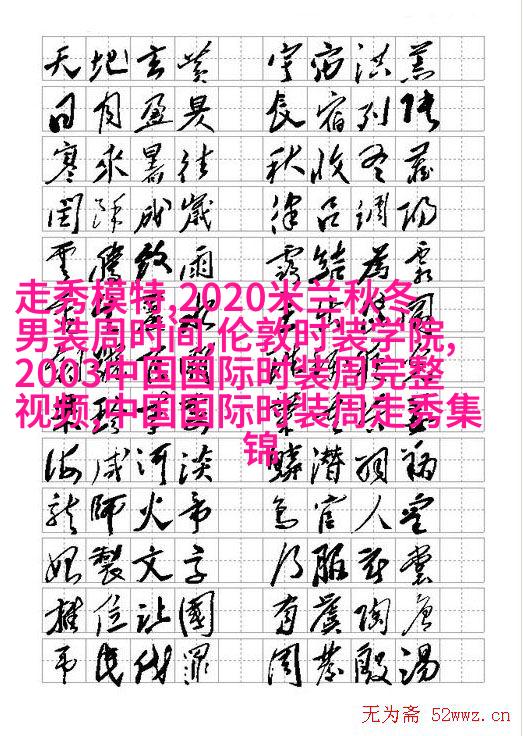 天地玄黄 宇宙洪荒
日月盈昃 辰宿列張
寒來暑往 秋收冬藏
閏餘成歲 律吕調陽
雲騰致雨 露結為霜
走秀模特,2020米兰秋冬
男装周时间,伦敦时装学院,
2003中国国际时装周完整
视频,中国国际时装周走秀集
锦
海咸河淡 鱗潜羽翔
龍師火帝 鳥官人皇
始製文字 乃服衣裳
推位让國 有虞陶唐
弔民伐罪 周發殷湯
无为斋 52wwz.cn